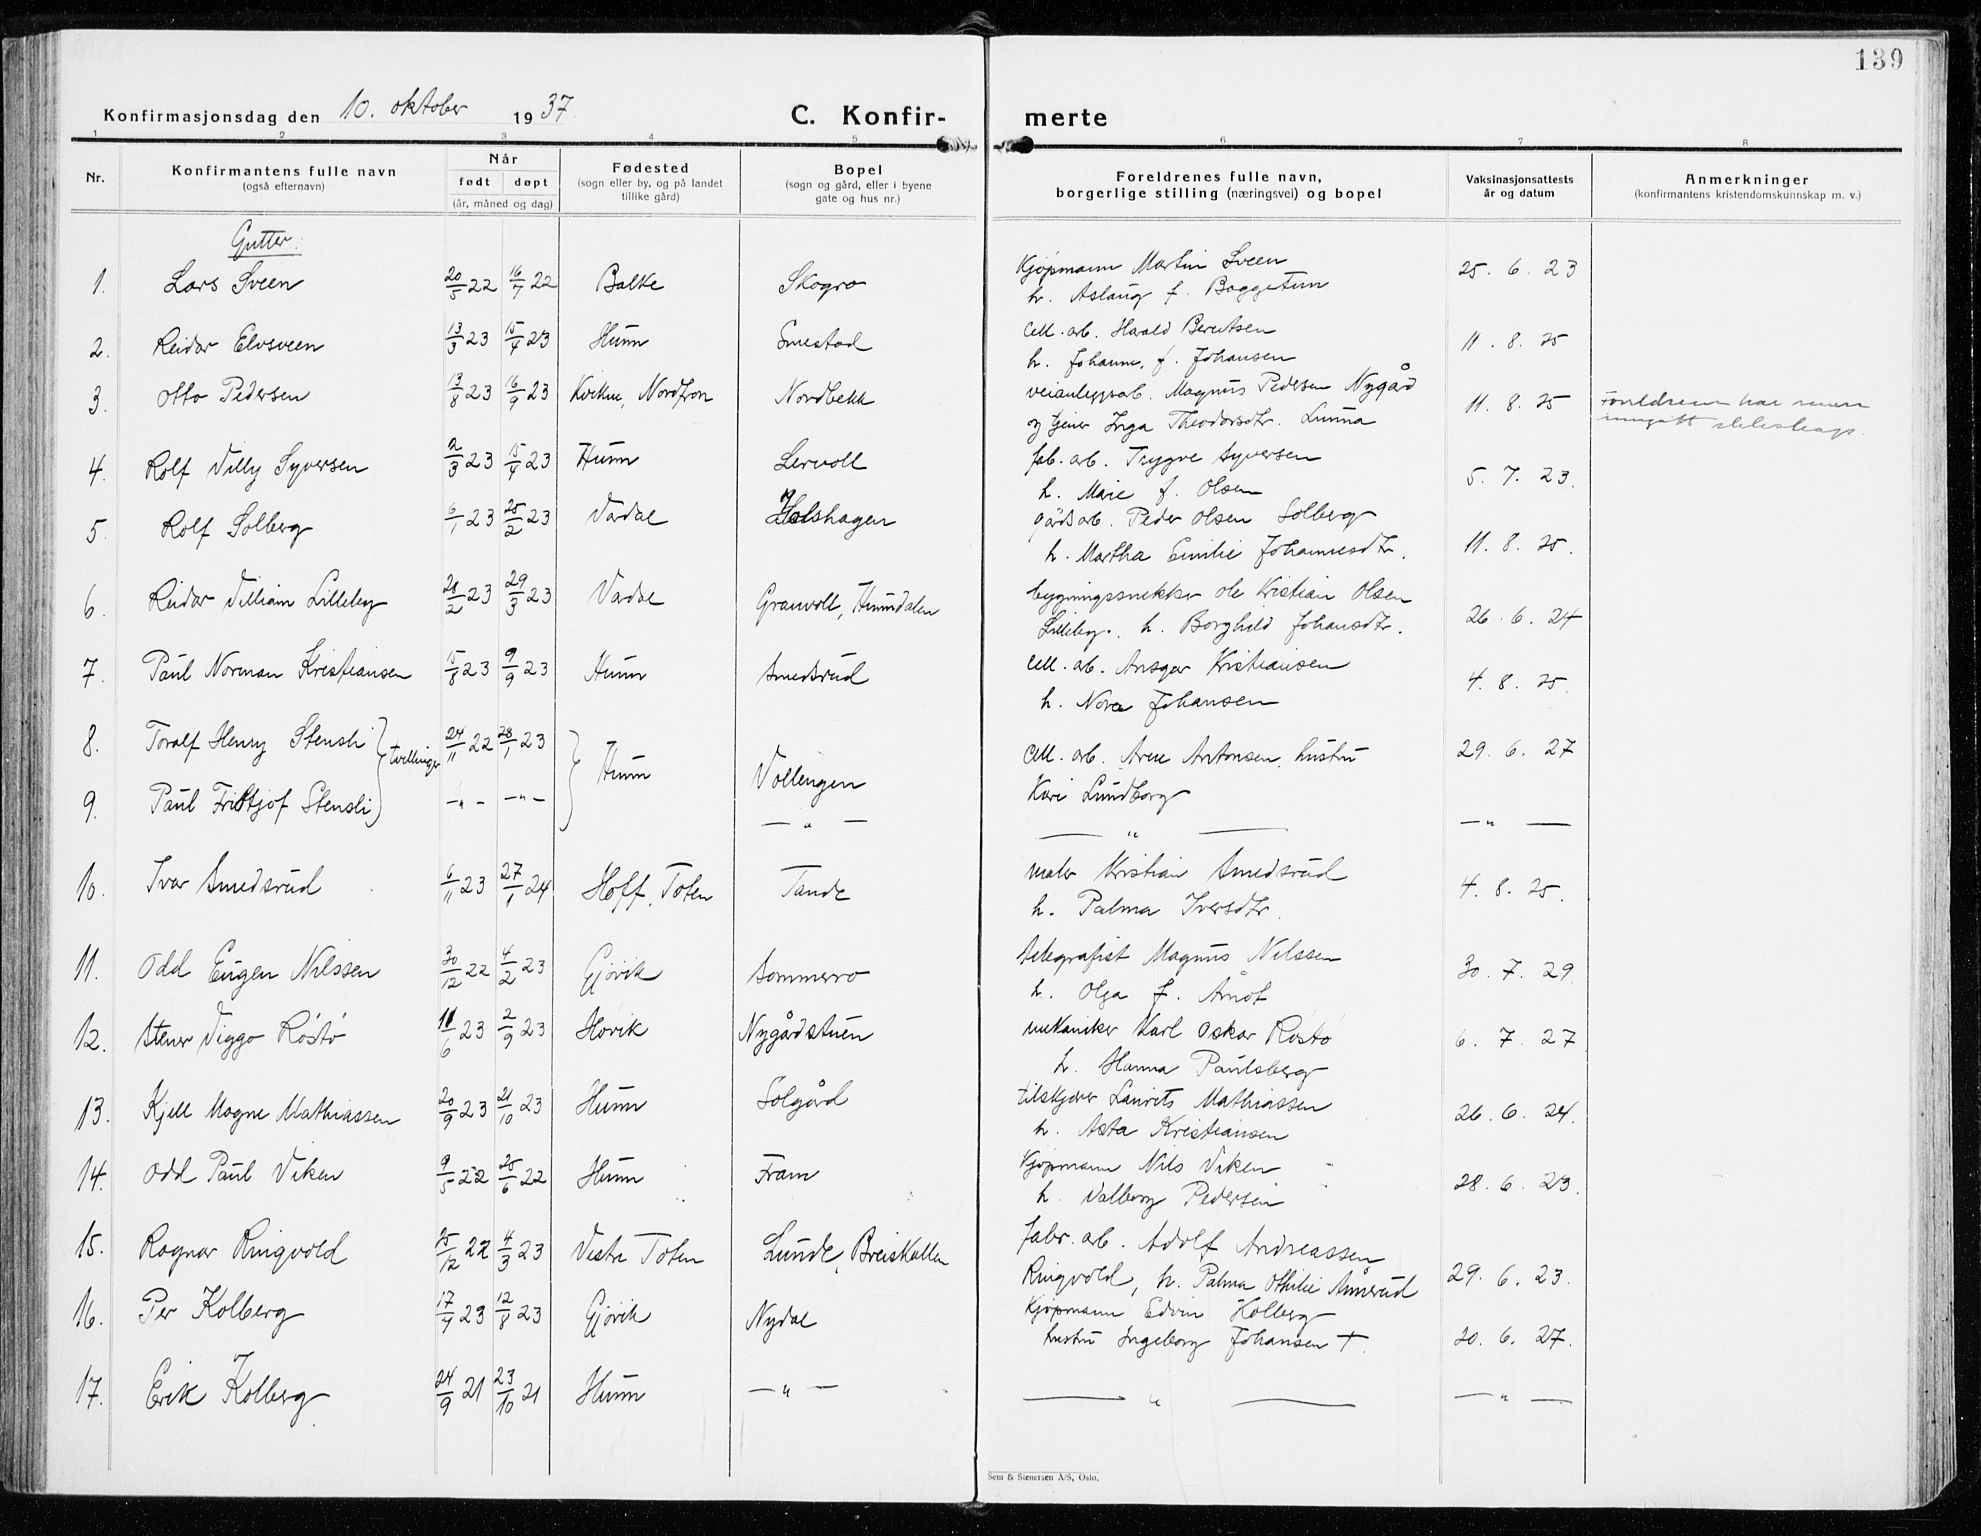 139
Konfirmasjonsdag den 10. oktober 1937
C. Konfirmerte
1 2 3 4 5 6 7 8
Nr.
Konfirmantens fulle navn
(også efternavn)
Når
født døpt
(år, måned og dag)
Fødested
(sogn eller by, og på landet
tillike gård)
Bopel
(sogn og gård, eller i byene
gate og hus nr.)
Foreldrenes fulle navn,
borgerlige stilling (næringsvei) og bopel
Vaksinasjonsattests
år og datum
Anmerkninger
(konfirmantens kristendomskunnskap m. v.)
Gutter:
1. Lars Sveen 20/5 22 16/7 22 Balke Skogro Kjøpmann Martin Sveen 25. 6. 23
h. Aslaug f. Baggetun
2. Reidar Elvsveen 13/3 23 15/4 23 Hunn Smestad cell. arb. Harald Berntsen 11. 8. 25
h. Johanne, f. Johansen
3. Otto Pedersen 13/8 23 16/9 23 Kvikne, Nordfron Nordbekk veianleggsarb. Magnus Pedersen Nygård 11. 8. 25 Foreldrene har senere
og tjener Inga Theodorsdtr. Lunna inngått ekteskap.
4. Rolf Villy Syversen 2/3 23 15/4 23 Hunn Lervoll fab. arb. Trygve Syversen 5. 7. 23.
h. Marie f. Olsen
5. Rolf Solberg 6/1 23 25/2 23 Vardal Halshagen gårdsarb. Peder Olsen Solberg 11. 8. 25.
h. Martha Emilie Johannesdtr.
6. Reidar Villiam Lilleby 28/2 23 29/3 23 Vardal Granvoll, Hunndalen bygningssnekker Ole Kristian Olsen 26. 6. 24
Lilleby. h. Borghild Johansdtr.
7. Paul Norman Kristiansen 15/8 23 9/9 23 Hunn Smedsrud cell. arb. Ansgar Kristiansen 4. 8. 25.
h. Nora Johansen
8. Toralf Henry Stensli } tvillinger 24/11 22 28/1 23 } Hunn Vollengen cell. arb. Arne Antonsen, hustru 29. 6. 27
Kari Lundborg
9. Paul Fridtjof Stensli -"- -"- — " — — " — — " —
10. Ivar Smedsrud 6/11 23 27/1 24 Hoff, Toten Tande maler Kristian Smedsrud 4. 8. 25.
h. Palma Iversdtr.
11. Odd Eugen Nilssen 30/12 22 4/2 23 Gjøvik Sommerro telegrafist Magnus Nilssen 30. 7. 29.
h. Olga f. Arnót
12. Stener Viggo Røstø 11/6 23 2/9 23 Høvik Nygårdstuen mekaniker Karl Oskar Røstø 6. 7. 27
h. Hanna Paulsberg
13. Kjell Magne Mathiassen 20/9 23 21/10 23 Hunn Solgård tilskjærer Laurits Mathiassen 26. 6. 24.
h. Asta Kristiansen
14. Odd Paul Viken 9/5 22 25/6 22 Hunn Fram Kjøpmann Nils Viken 28. 6. 23.
h. Valborg Pedersen
15. Ragnar Ringvold 25/12 22 4/3 23 Vestre Toten Lunde, Breiskallen fabr. arb. Adolf Andreassen
Ringvold, h. Palma Othilie Amrud 29. 6. 23.
16. Per Kolberg 17/7 23 12/8 23 Gjøvik Nydal Kjøpmann Edvin Kolberg
hustru Ingeborg Johansen + 20. 6. 27.
17. Erik Kolberg 24/9 21 23/10 21 Hunn — " — — " — — " —
Sem & Stenersen A/S, Oslo.